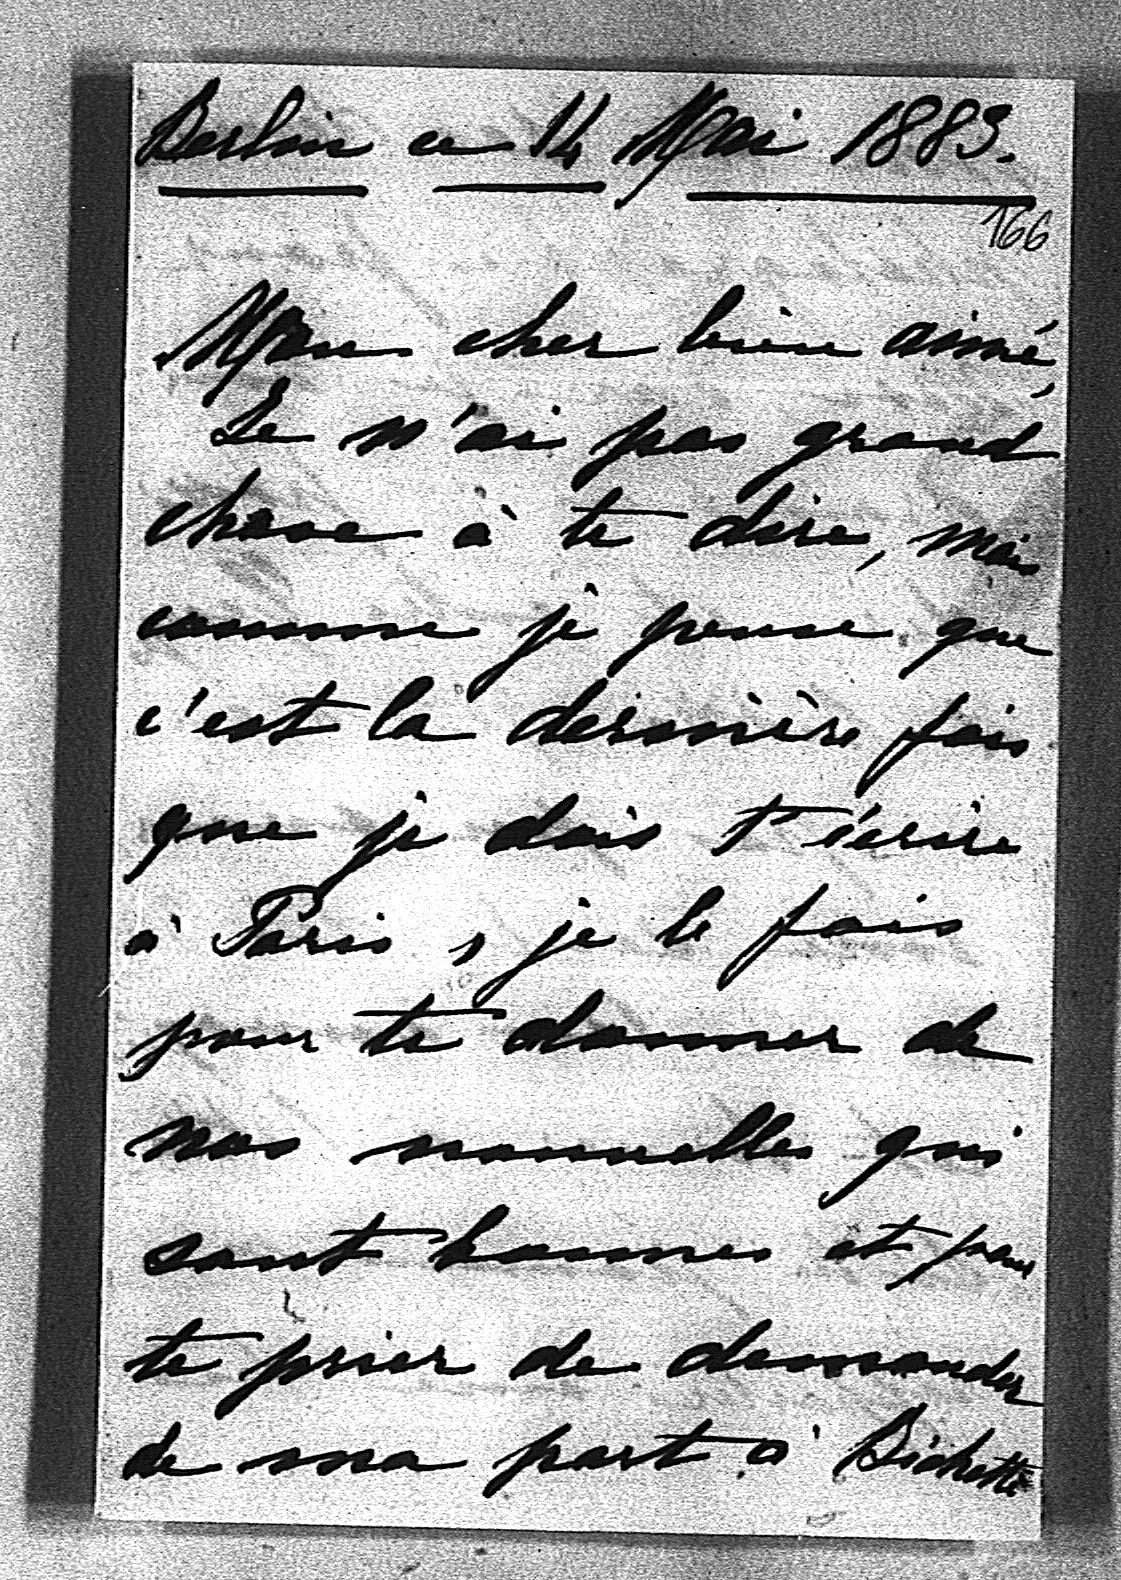 Berlin ce 14 Mai 1883.
166
Mon cher bien aimé,
Je n'ai pas grand
chose à te dire, mais
comme je pense que
c'est la dernière fois
que je dois t'écrire
à Paris, je le fais
pour te donner de
nos nouvelles qui
sont bonnes et pour
te prier de demander
de ma part à Bichette